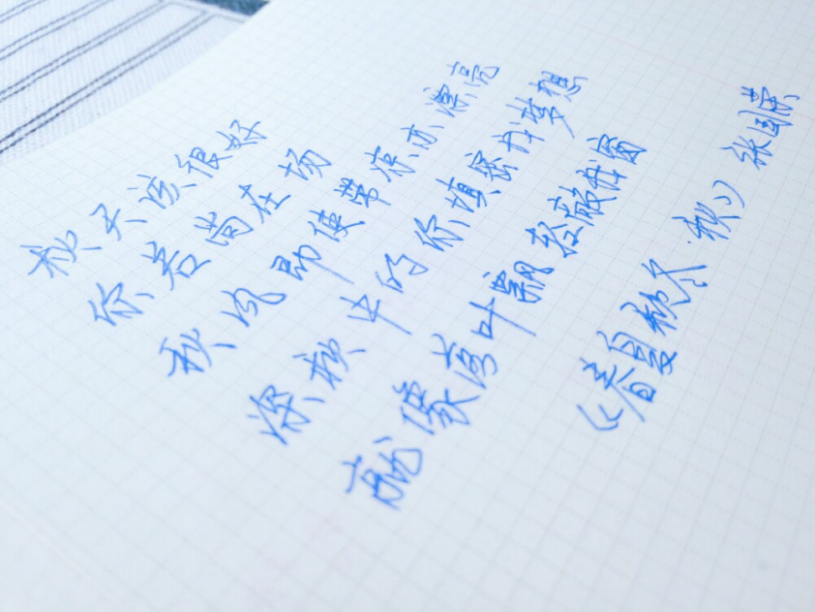 秋天该很好
你若尚在场
秋风即使带凉亦漂亮
深秋中的你填密我梦想
就像落叶飘轻敲我窗
《春夏秋冬·秋》张国荣